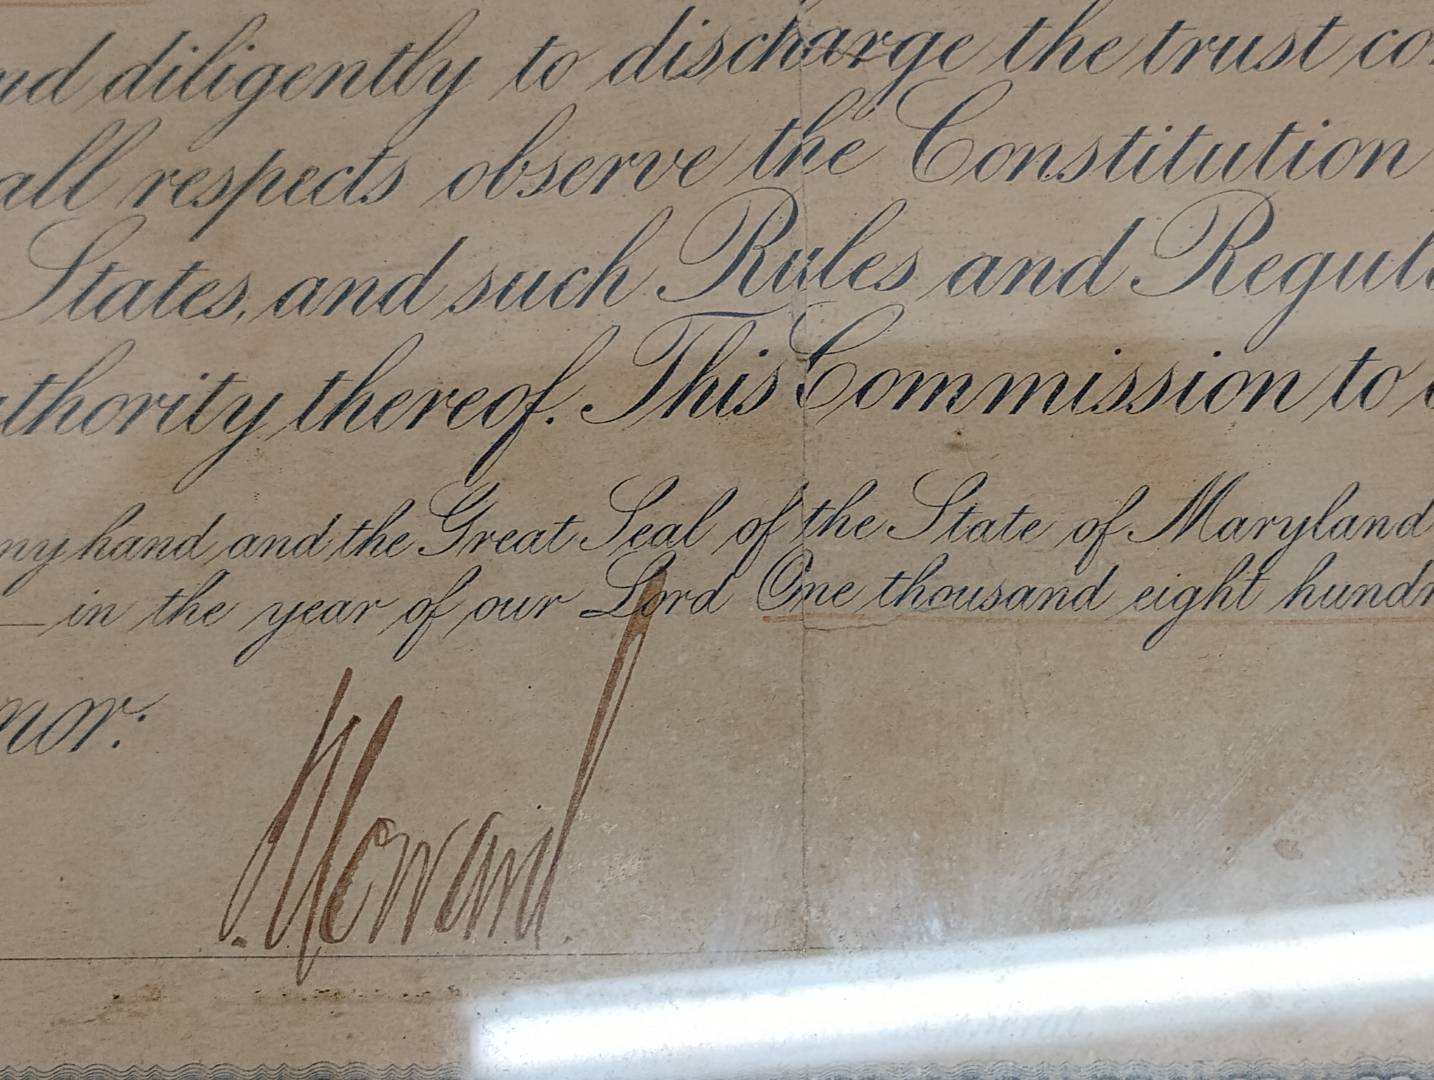 diligently to discharge the trust
all respects observe the Constitution
States, and such Rules and
thereof. This Commission to
hand and the Great Seal of the State of Maryland
in the year of our Lord One thousand eight
Howard